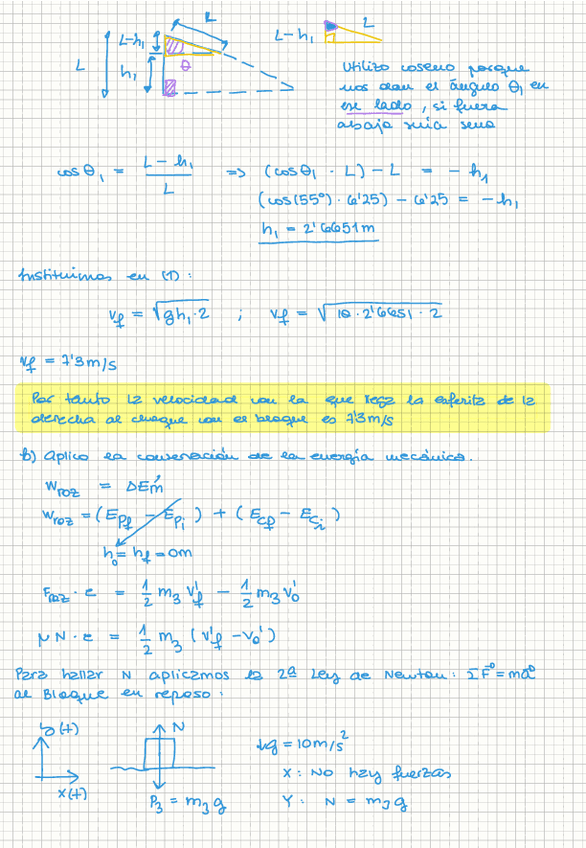 L
L-h₁
L
h₁
θ
L-h₁
L
Utilizo coseno porque
nos dan el ángulo θ₁ en
ese lado, si fuera
abajo sería seno
cos θ₁ = (L - h₁)/L => (cos θ₁ · L) - L = - h₁
(cos(55°) · 6'25) - 6'25 = - h₁
h₁ = 2'6651 m
Sustituimos en (1):
v_f = √(g h₁ · 2) ; v_f = √(10 · 2'6651 · 2)
v_f = 7'3 m/s
Por tanto la velocidad con la que llega la esferita de la
derecha al choque con el bloque es 7'3 m/s
b) Aplico la conservación de la energía mecánica.
W_roz = ΔEm
W_roz = (E_pf - E_pi) + (E_cf - E_ci)
h₀ = h_f = 0m
F_roz · e = 1/2 m₃ v'_f - 1/2 m₃ v'₀
μ N · e = 1/2 m₃ (v'_f - v₀')
Para hallar N aplicamos la 2ª Ley de Newton: ΣF = ma
al Bloque en reposo:
y (+)
x (+)
N
P₃ = m₃ g
g = 10 m/s²
X: No hay fuerzas
Y: N = m₃ g